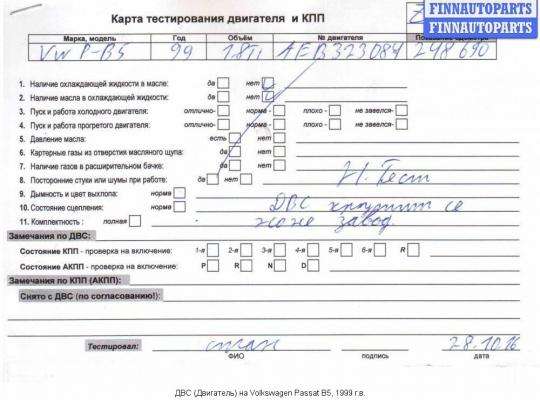 FINNAUTOPARTS
FINNAUTOPARTS
Карта тестирования двигателя и КПП
Марка, модель Год Объём № двигателя Показание одометра
VW P-B5 99 1.8Ti AEB323084 248690
1. Наличие охлаждающей жидкости в масле: да нет
2. Наличие масла в охлаждающей жидкости: да нет
3. Пуск и работа холодного двигателя: отлично- норма - плохо - не завелся-
4. Пуск и работа прогретого двигателя: отлично- норма - плохо - не завелся-
5. Давление масла: есть нет
6. Картерные газы из отверстия масляного щупа: да нет
7. Наличие газов в расширительном бачке: да нет
8. Посторонние стуки или шумы при работе: да нет
Н. Тест
9. Дымность и цвет выхлопа: норма
10. Состояние сцепления: норма
ДВС крутит се
11. Комплектность : полная
но не завод.
Замечания по ДВС:
Состояние КПП - проверка на включение: 1-я 2-я 3-я 4-я 5-я 6-я R
Состояние АКПП - проверка на включение: P R N D
Замечания по КПП (АКПП):
Снято с ДВС (по согласованию!):
Тестировал: 28.10.16
ФИО подпись дата
ДВС (Двигатель) на Volkswagen Passat B5, 1999 г.в.